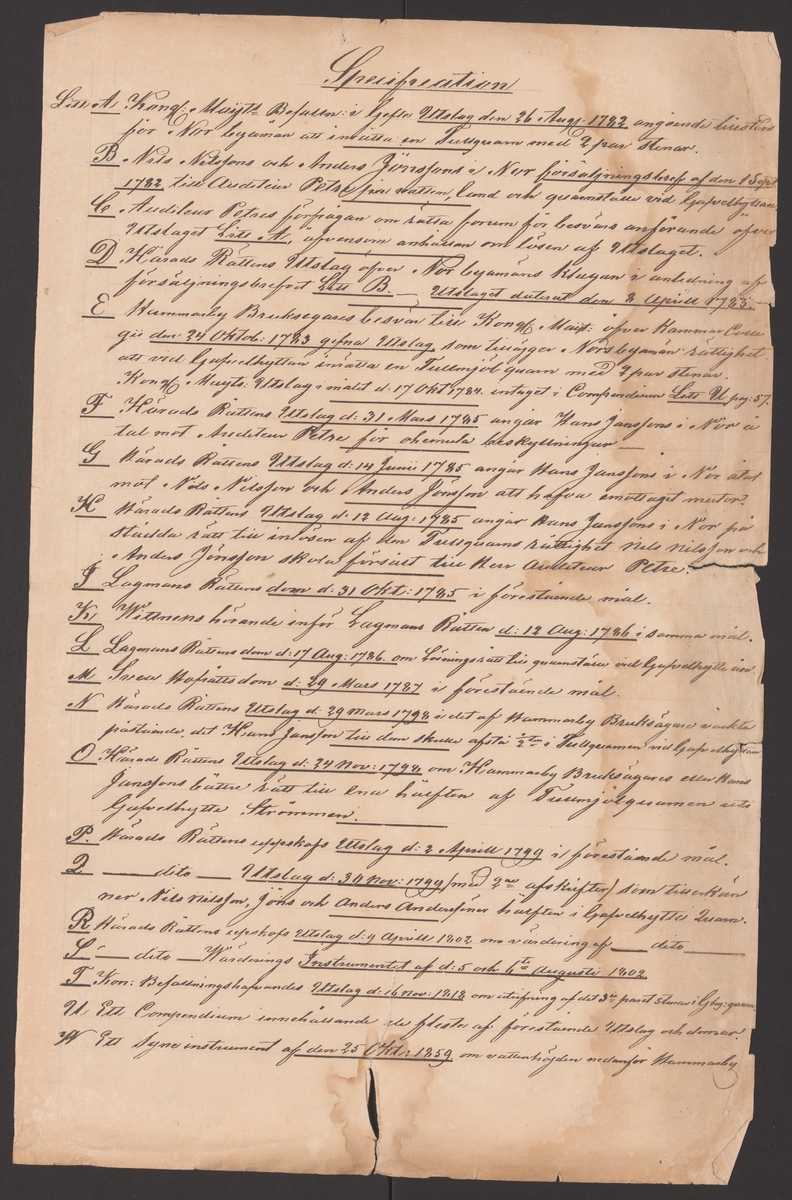 Specification
Litt A. Kongl: Maijts Befalln: i Gefle Utslag den 26 Aug: 1782 angående tillstånd
för Nor byamän att inrätta en Tullquarn med 2 par stenar.
B Nils Nilssons och Anders Jönssons i Nor försäljningsbref af den 1 Sept
1782 till Auditeur Petre på vatten, land och quarnställe vid Gafvelhyttan
C. Auditeur Petres förfrågan om rätta forum för besvärs anförande öfver
Utslaget Litt A, äfvensom anhållan om lösen af Utslaget.
D Härads Rättens Utslag öfver Nor byamäns klagan i anledning af
försäljningsbrefvet Litt B. — Utslaget daterat den 3 Aprill 1783.
E Hammarby Bruksegares besvär till Kongl Maijt: öfver Kammar Colle
gii den 24 Oktob: 1783 gifna Utslag, som tillägger Nors byamän rättighet
att vid Gafvelhyttan inrätta en Tullmjöl quarn med 2 par stenar.
Kongl Maijts: Utslag i målet d: 17 Okt 1784. intaget i Compendium Litt U pag: 57.
F Härads Rättens Utslag d: 31 Mars 1785 angår Hans Janssons i Nor å
tal mot Auditeur Petre för ohemula beskyllningar —
G Härads Rättens Utslag d: 14 Junii 1785 angår Hans Janssons i Nor åtal
mot Nils Nilsson och Anders Jönsson att hafva emottaget mutor.
H Härads Rättens Utslag d: 12 Aug: 1785 angår Hans Janssons i Nor på
stådda rätt till inlösen af den Tullquarns rättighet Nils Nilsson och
Anders Jönsson skola försålt till Herr Auditeur Petre.
I Lagmans Rättens dom d: 31 Okt: 1785 i förestående mål.
K Wittnens hörande inför Lagmans Rätten d: 12 Aug: 1786 i samma mål.
L Lagmans Rättens dom d: 17 Aug: 1786. om lösningsrätt till quarnställe vid Gafvelhytte ån
M Svea Hofrätts dom d: 29 Mars 1787 i förestående mål.
N Härads Rättens Utslag d: 29 Mars 1798 i det af Hammarby Bruksägare väckta
påstående, det Hans Jansson till dem skulle afstå 1/2 i Tullquarnen vid Gafvelhyttan
O. Härads Rättens Utslag d: 24 Nov: 1798 om Hammarby Bruksägares eller Hans
Janssons bättre rätt till ena hälften af Tullmjölquarnen uti
Gafvelhytte Strömmen.
P. Härads Rättens uppskofs Utslag d: 2 Aprill 1799 i förestående mål.
Q — dito — Utslag d: 30 Nov: 1799 (med 2ne afskrifter) som tillerkän
ner Nils Nilsson, Jöns och Anders Anderssöner hälften i Gafvelhytte Quarn.
R Härads Rättens upskofs Utslag d: 9 Aprill 1802 om värdering af — dito —
S — dito — Wärderings Instrumentet af d: 5 och 6te Augusti 1802
T Kon: Befallningshafvandes Utslag d: 16 Nov: 1818 om utrifning af det 3je paret stenar i G.hy: quarn.
U. Ett Compendium innehållande de fleste af förestående Utslag och domar.
W Ett Syne instrument af den 25 Okt: 1859 om vattenhöjden nedanför Hammarby